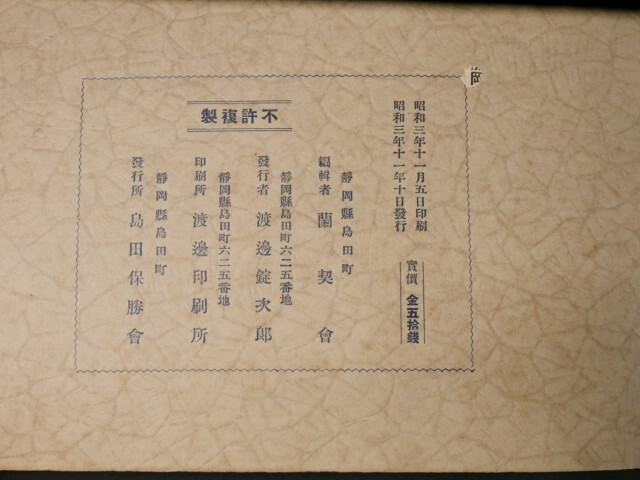 昭和三年十一月五日印刷
昭和三年十一年十日發行
實價 金五拾錢
不許複製
靜岡縣島田町
編輯者 蘭契會
靜岡縣島田町六二五番地
發行者 渡邊錠次郎
靜岡縣島田町六二五番地
印刷所 渡邊印刷所
靜岡縣島田町
發行所 島田保勝會